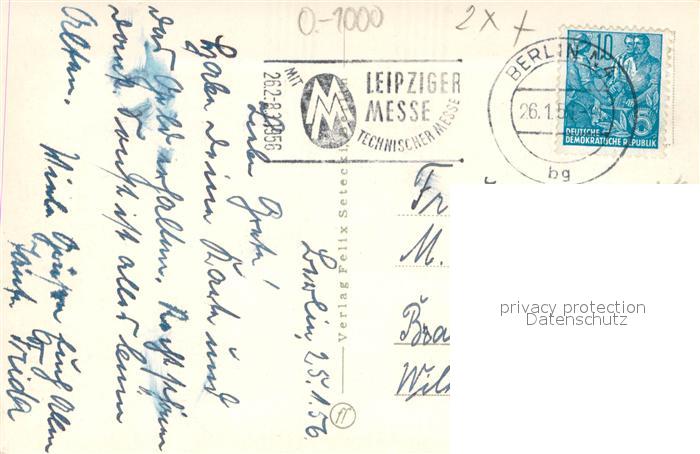 O-1000
2x +
MIT
26.2-8.3.1956
MM
LEIPZIGER
MESSE
TECHNISCHER MESSE
BERLIN
26.1.5
bg
10
5
DEUTSCHE
DEMOKRATISCHE REPUBLIK
Verlag Felix Setecki
Berlin, 25.1.56.
Liebe Grete!
Habe Deine Karte und
das Geld erhalten. Recht schönen
Dank. Sonst ist alles beim
Alten. Viele Grüße Euch allen
Tante Frida
Fr
M.
Bra
Wil
privacy protection
Datenschutz